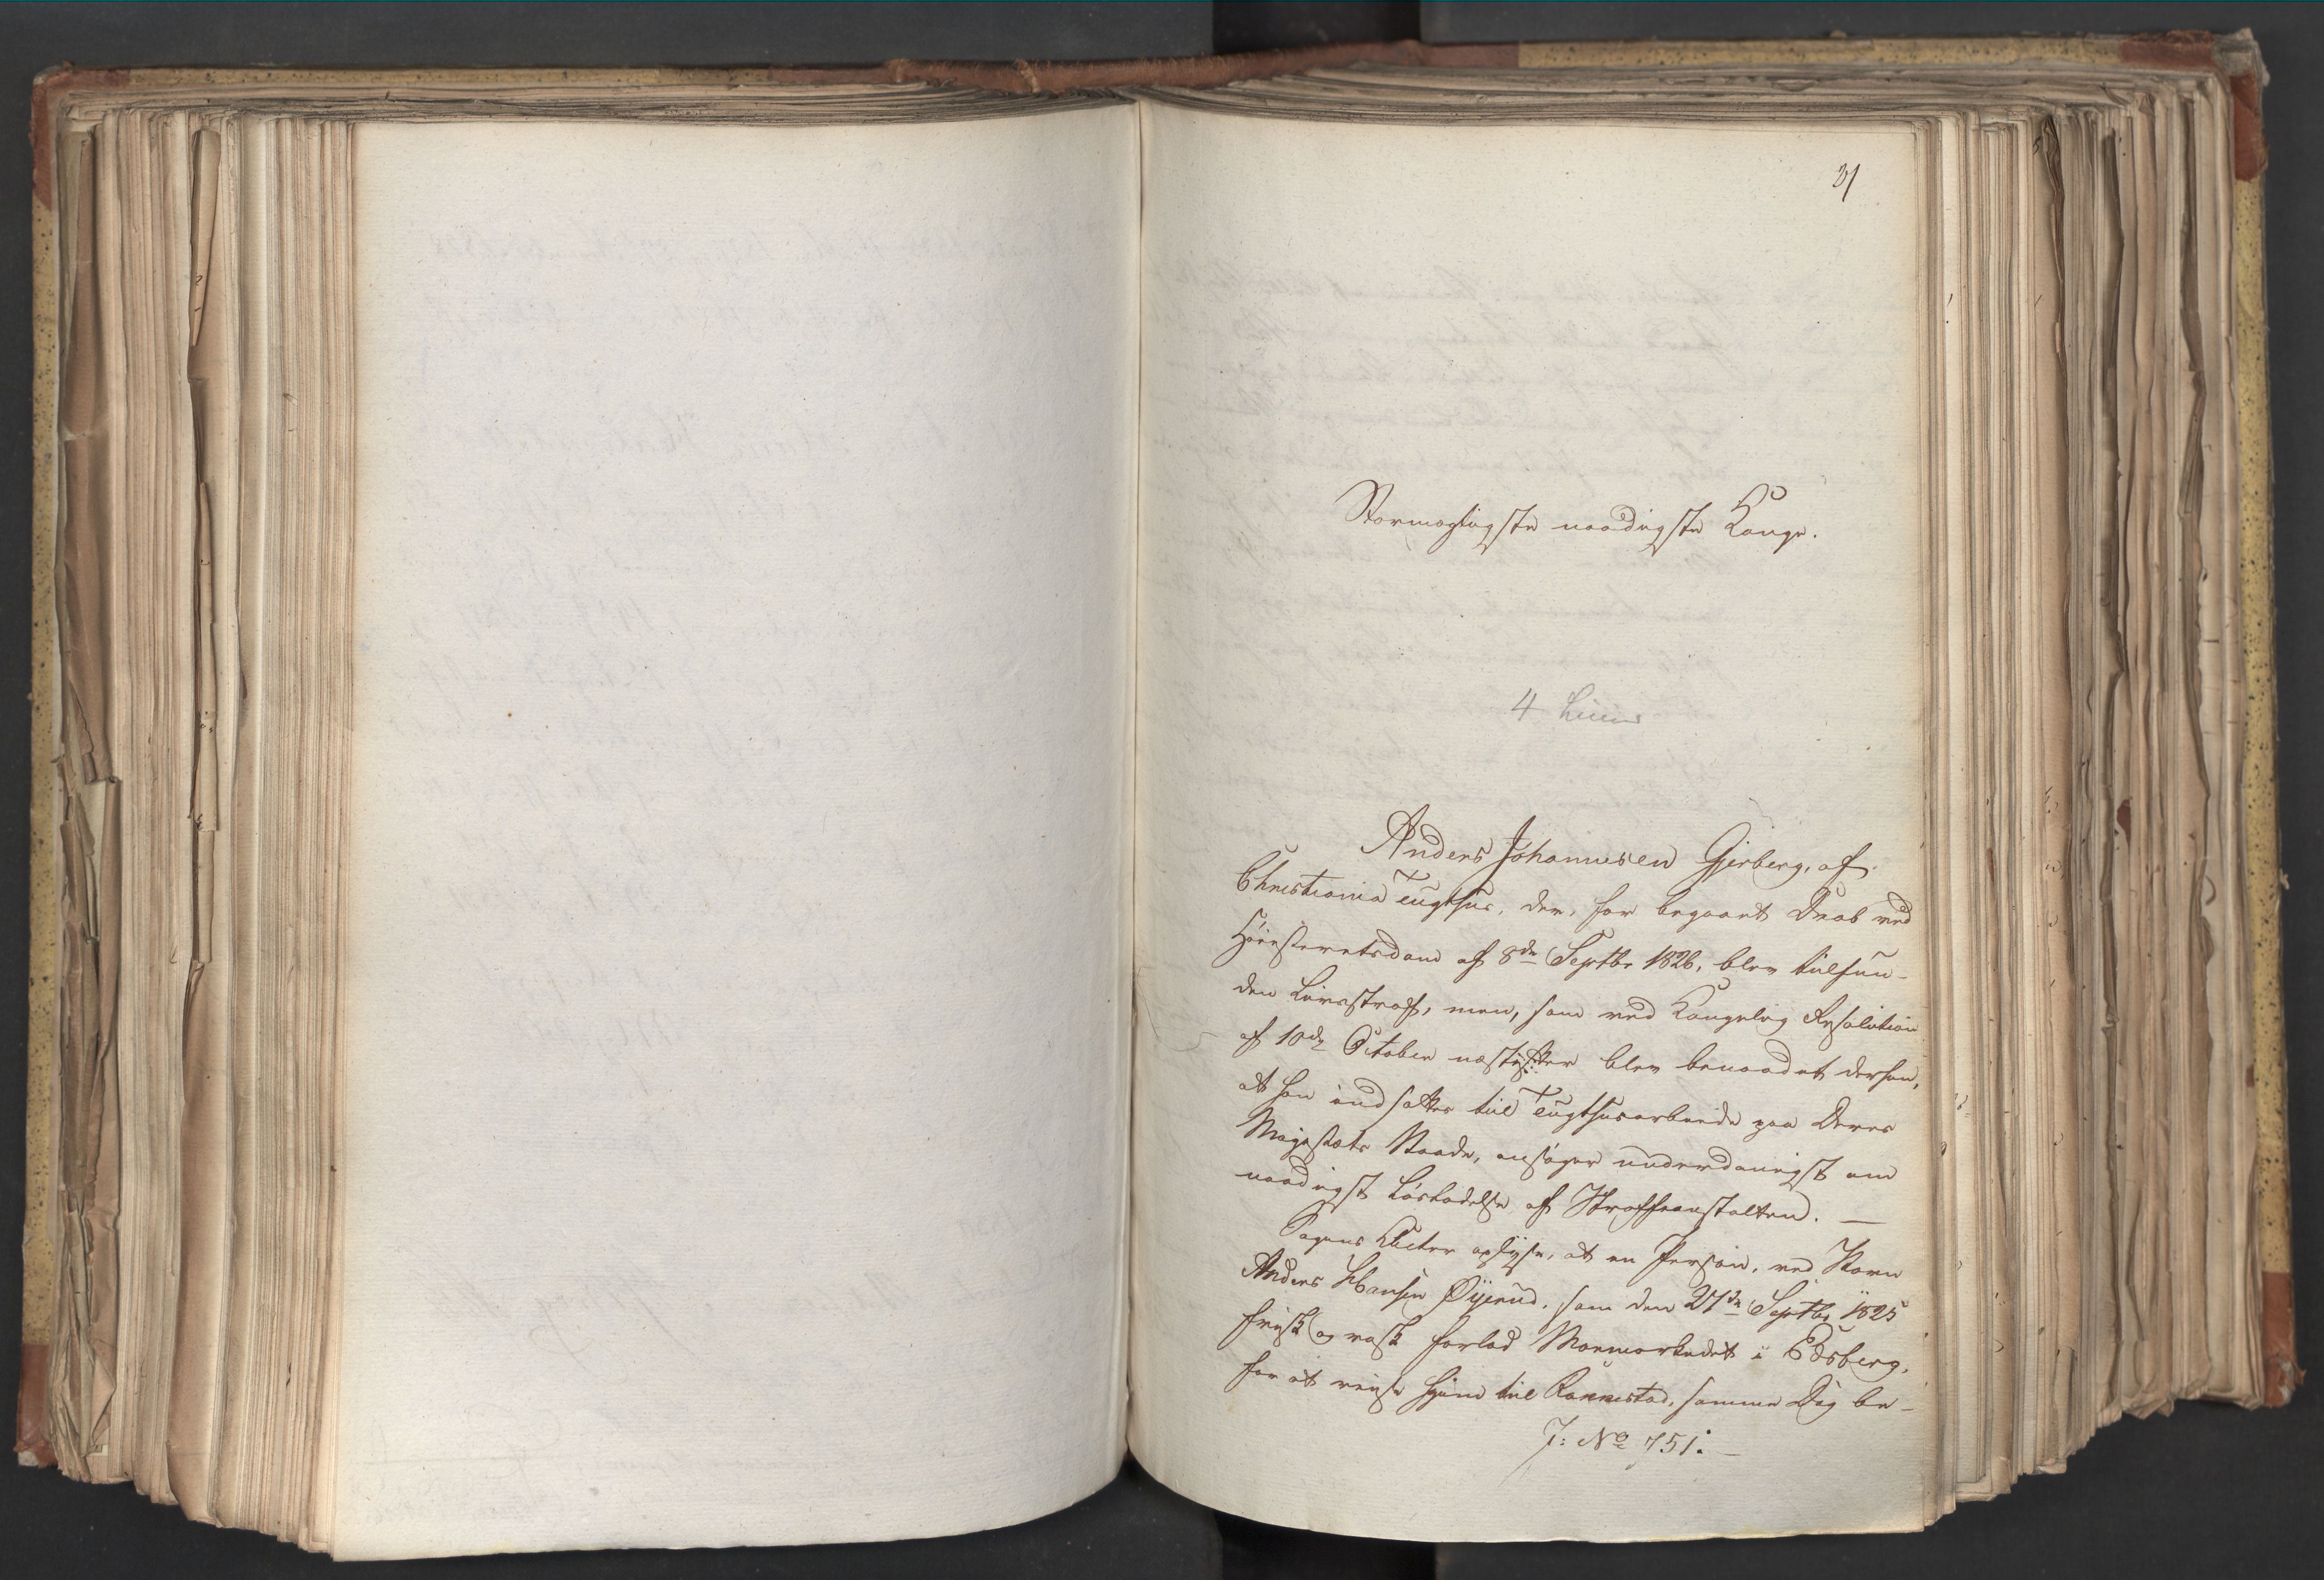 21
Stormægtigste naadigste Konge.
4 Linier
Anders Johannesen Gjerberg, af
Christiania Tugthus, der, for begaaet Drab ved
Høiesteretsdom af 8de Septbr 1826, blev tilfun-
den Livsstraf, men, som ved Kongelig Resolution
af 10de October næstefter blev benaadet derhen,
at han indsattes til Tugthusarbeide paa Deres
Majestæts Naade, ansøger underdanigst om
naadigst Løsladelse af Straffeanstalten. —
Sagens Acter oplyse, at en Person, ved Navn
Anders Hansen Øijerud, som den 27de Septbr 1825
frisk og rask forlod Monmarkedet i Edsberg,
for at reise hjem til Rakkestad, samme Dag be-
J: No 751. —